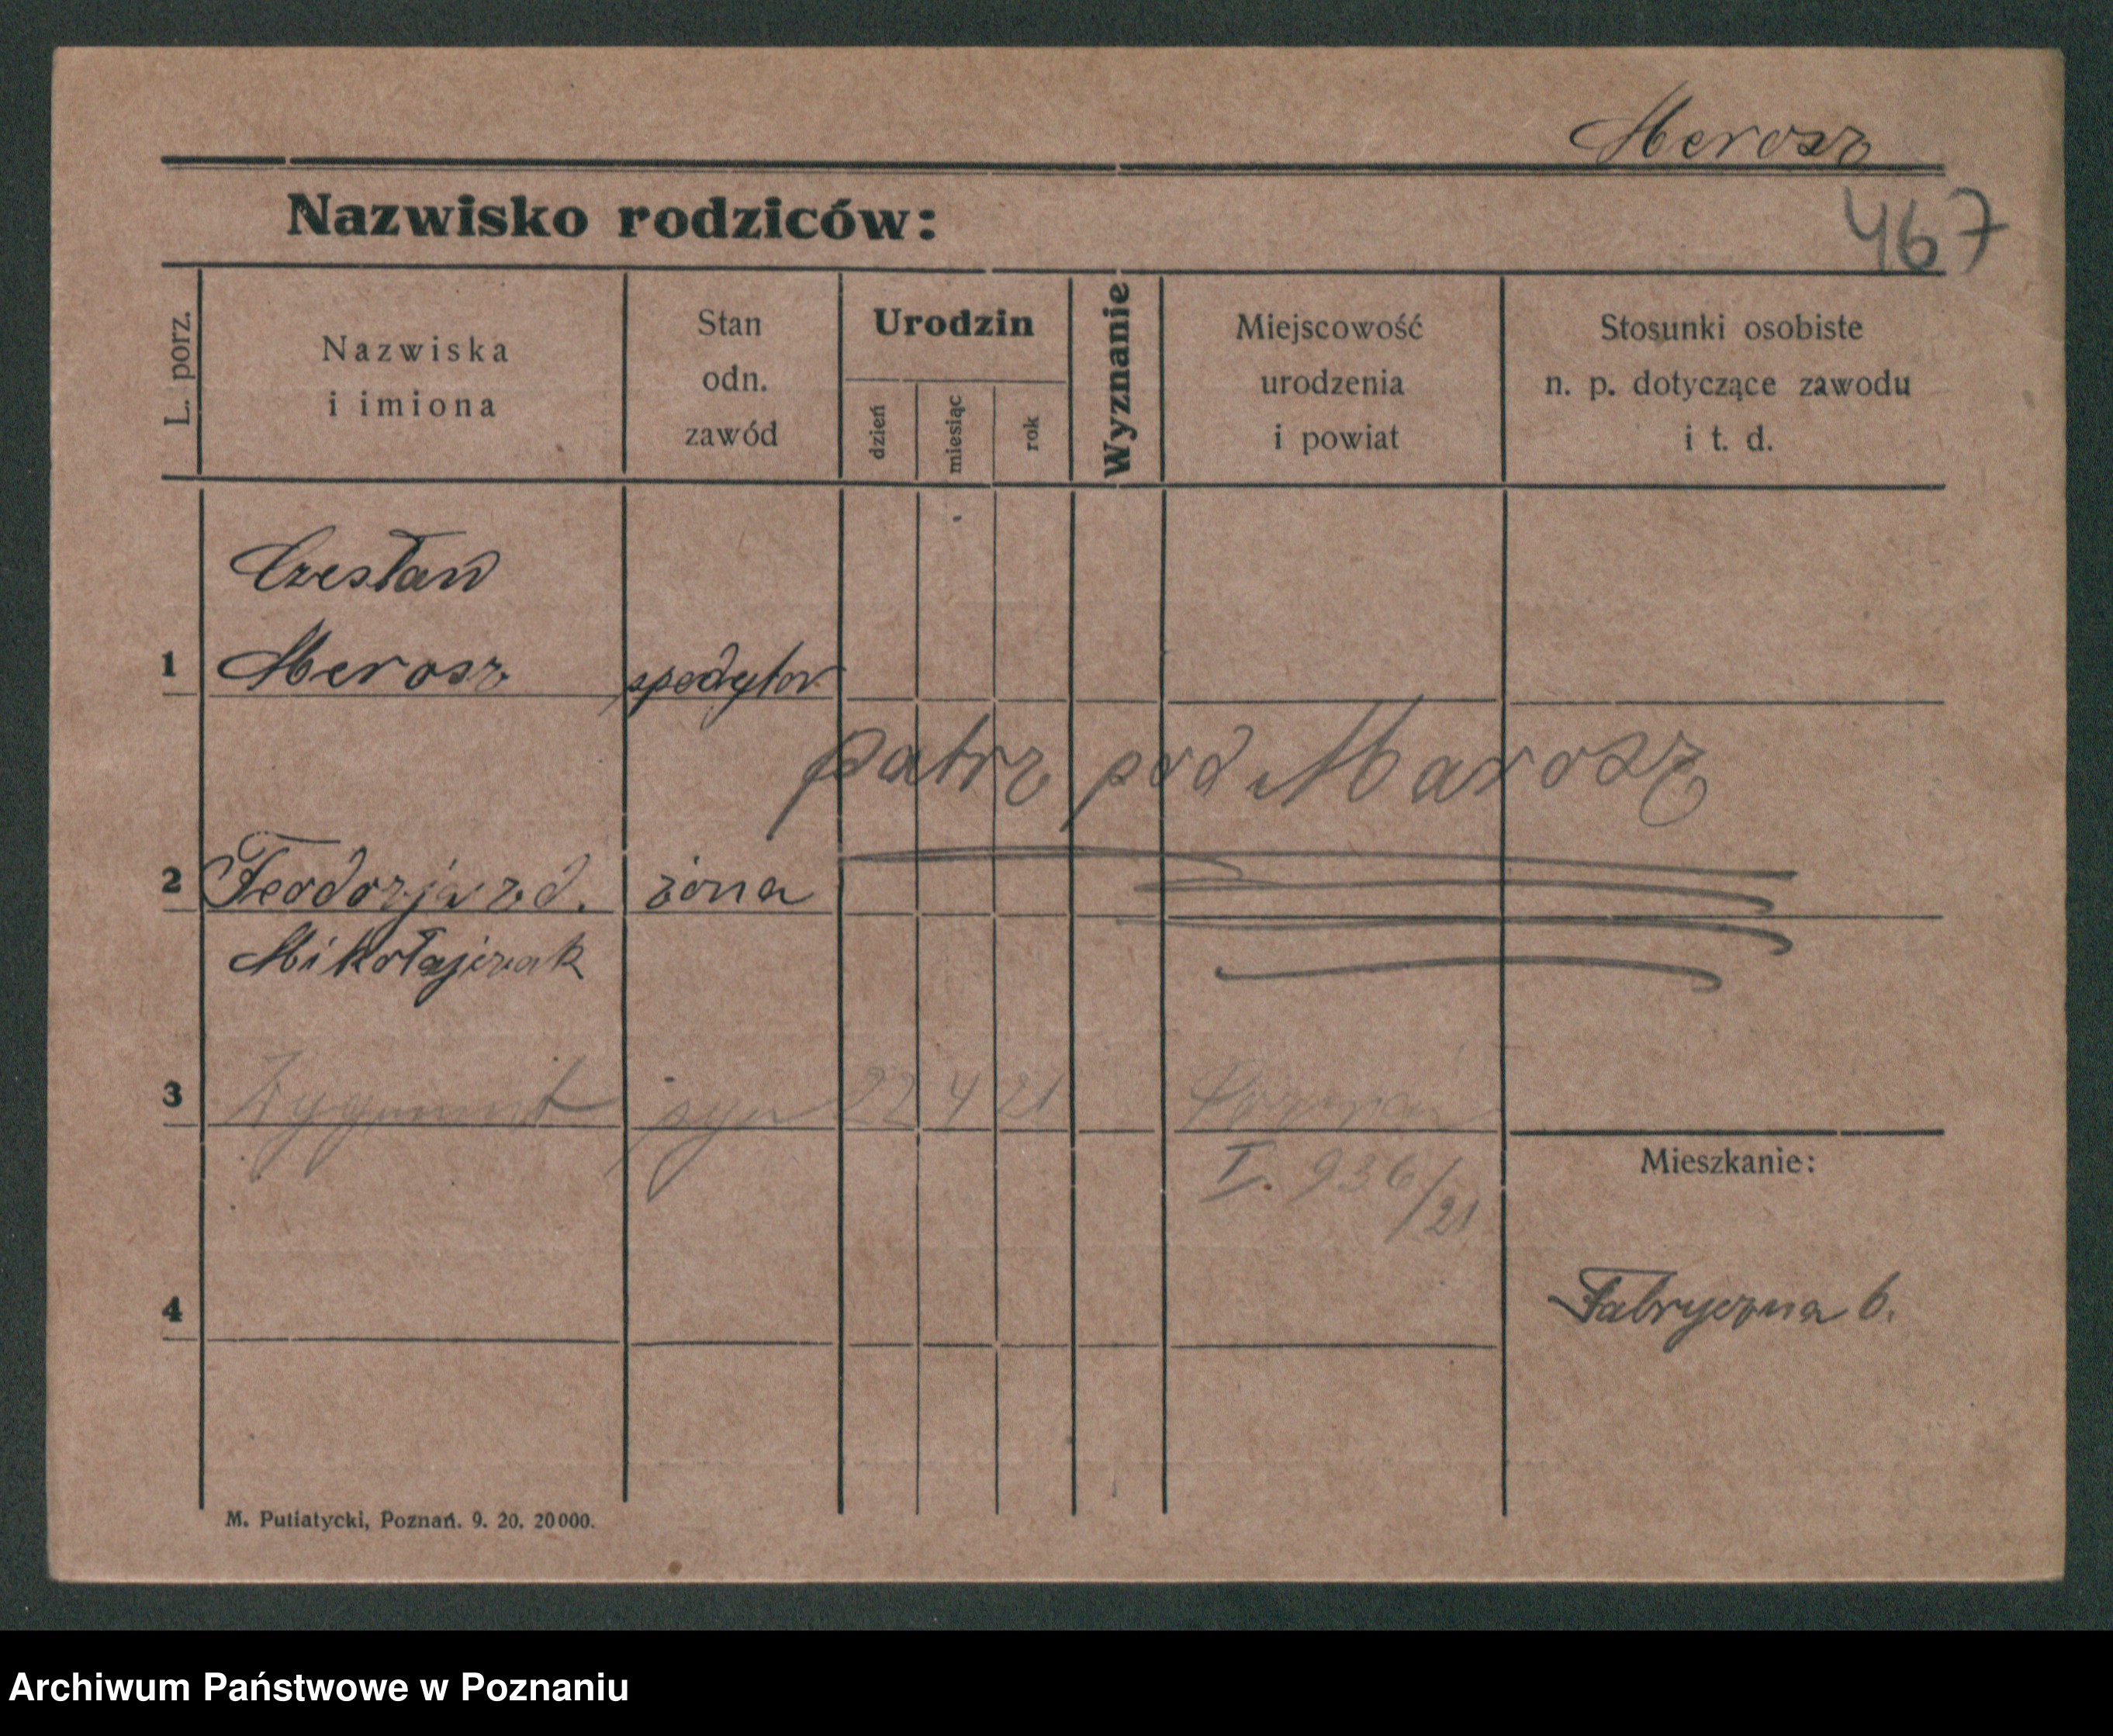 Merosz
Nazwisko rodziców:
467
L. porz.
Nazwiska
i imiona
Stan
odn.
zawód
Urodzin
dzień
miesiąc
rok
Wyznanie
Miejscowość
urodzenia
i powiat
Stosunki osobiste
n. p. dotyczące zawodu
i t. d.
Czesław
1 Merosz spedytor
patrz pod Marosz
2 Teodozja zd. żona
Mikołajczak
3 Zygmunt syn 22 4 21 Poznań
I. 936/21
Mieszkanie:
4
Fabryczna 6.
M. Putiatycki, Poznań. 9. 20. 20000.
Archiwum Państwowe w Poznaniu